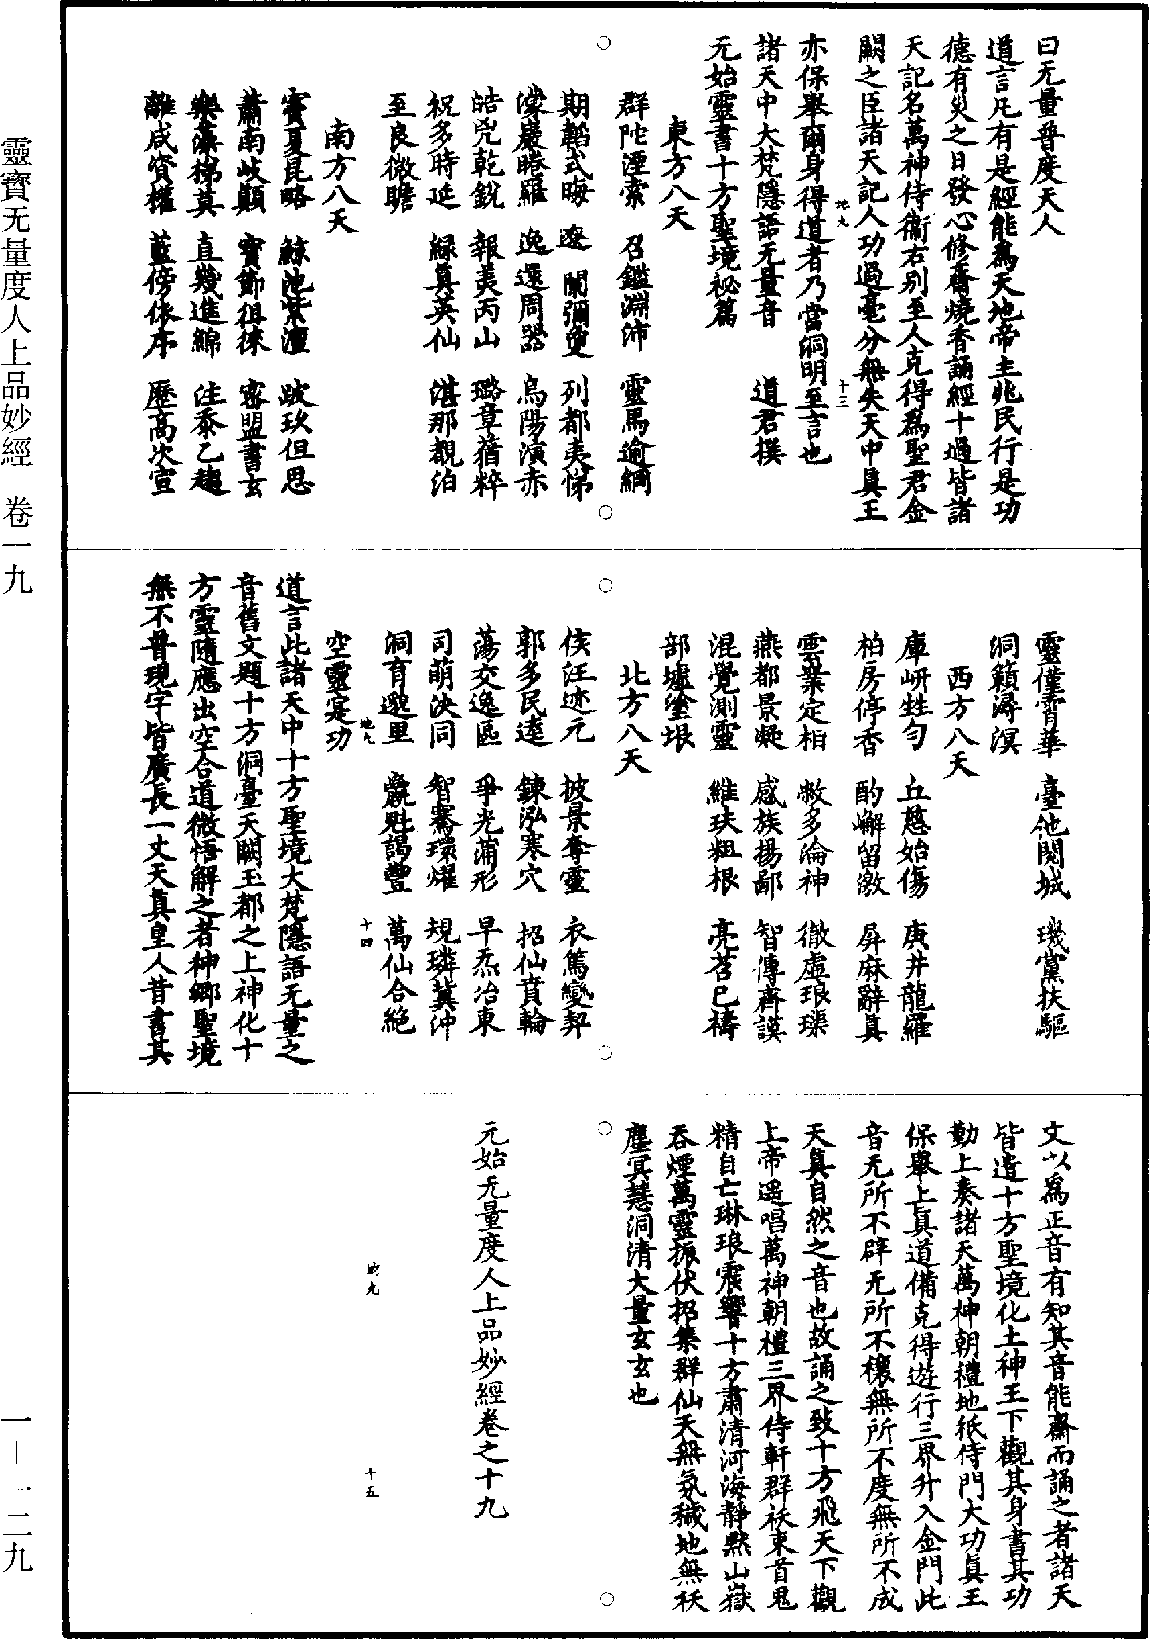 曰无量普度天人
道言凡有是經能爲天地帝主兆民行是功
德有災之日發心修齋燒香誦經十過皆諸
天記名萬神侍衞右别至人克得爲聖君金
闕之臣諸天記人功過毫分無失天中真王
亦保舉爾身得道者乃當洞明至言也
地九 十三
諸天中大梵隱語无量音 道君撰
元始靈書十方聖境秘篇
東方八天
群陀湮索 召鑑淵沛 靈馬逾綱
期韜式晦 遼閫彌夐 列都夷悌
濛巖晻羅 逸還周器 烏陽演赤
皓兕乾銳 報荑丙山 璐章蕕粹
祝多時延 緑真英仙 湛那覩泊
至良微瞻
南方八天
賓夏昆略 鯨池紫澶 跛玖但思
蕭南岐顛 寶節徂徠 密盟書玄
樂藻梯莫 直幾進綿 注泰乙趨
離咸資權 藍傍依序 歷高次宣
靈僅霄華 臺他閱城 璣黨扶驅
洞籟潯溟
西方八天
庫岍甡勻 丘慈始傷 庚井龍羅
柏房停香 酌嶰留激 屏麻辭真
雲業定相 敝多淪神 徹虚琅璖
燕都景凝 感族揚鄙 智傳齊謨
混覺測靈 維玞粗根 亮苕巳禱
部墟塗垠
北方八天
俟汪迹元 披景奪靈 衣篤變契
郭多民逵 鍊泓寒穴 招仙賁輪
蕩交逸區 爭光蒲形 早炁冶東
司萌決同 智騫環燿 規璘冀沖
洞育邈里 麑魁謁豐 萬仙合絶
地九 十四
空靈寔功
道言此諸天中十方聖境大梵隱語无量之
音舊文題十方洞臺天關玉都之上神化十
方靈隨應出空合道微悟解之者神鄉聖境
無不普現字皆廣長一丈天真皇人昔書其
文以爲正音有知其音能齋而誦之者諸天
皆遣十方聖境化土神王下觀其身書其功
勤上奏諸天萬神朝禮地祇侍門大功真王
保舉上真道備克得遊行三界升入金門此
音无所不辟无所不穰無所不度無所不成
天真自然之音也故誦之致十方飛天下觀
上帝遥唱萬神朝禮三界侍軒群袄束首鬼
精自亡琳琅震響十方肅清河海靜默山嶽
吞煙萬靈振伏招集群仙天無氛穢地無袄
塵冥慧洞清大量玄玄也
元始无量度人上品妙經卷之十九
地九 十五
靈寶无量度人上品妙經 卷一九
一—一二九